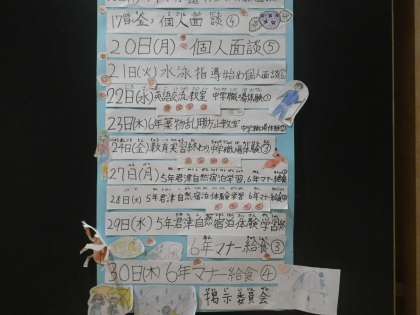 17日(金) 個人面談④
20日(月) 個人面談⑤
21日(火) 水泳指導始め 個人面談
22日(水) 英語交流教室 中学職場体験①
23日(木) 6年薬物乱用防止教室 中学職場体験②
24日(金) 教育実習終わり 中学職場体験③
27日(月) 5年君津自然宿泊学習, 6年マナー給食
28日(火) 5年君津自然宿泊体験学習 6年マナー給食
29日(水) 5年君津自然宿泊体験学習
6年マナー給食③
30日(木) 6年マナー給食④
掲示委員会